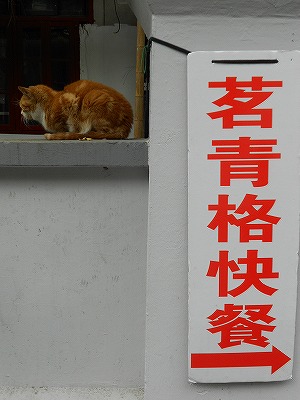 茗青格快餐